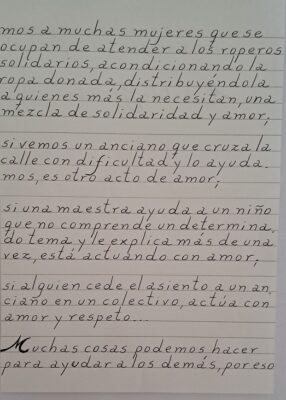 mos a muchas mujeres que se
ocupan de atender a los roperos
solidarios, acondicionando la
ropa donada, distribuyéndola
a quienes más la necesitan, una
mezcla de solidaridad y amor;
si vemos un anciano que cruza la
calle con dificultad y lo ayuda.
mos, es otro acto de amor;
si una maestra ayuda a un niño
que no comprende un determina.
do tema y le explica más de una
vez, está actuando con amor;
si alguien cede el asiento a un an.
ciano en un colectivo, actúa con
amor y respeto...
Muchas cosas podemos hacer
para ayudar a los demás, por eso